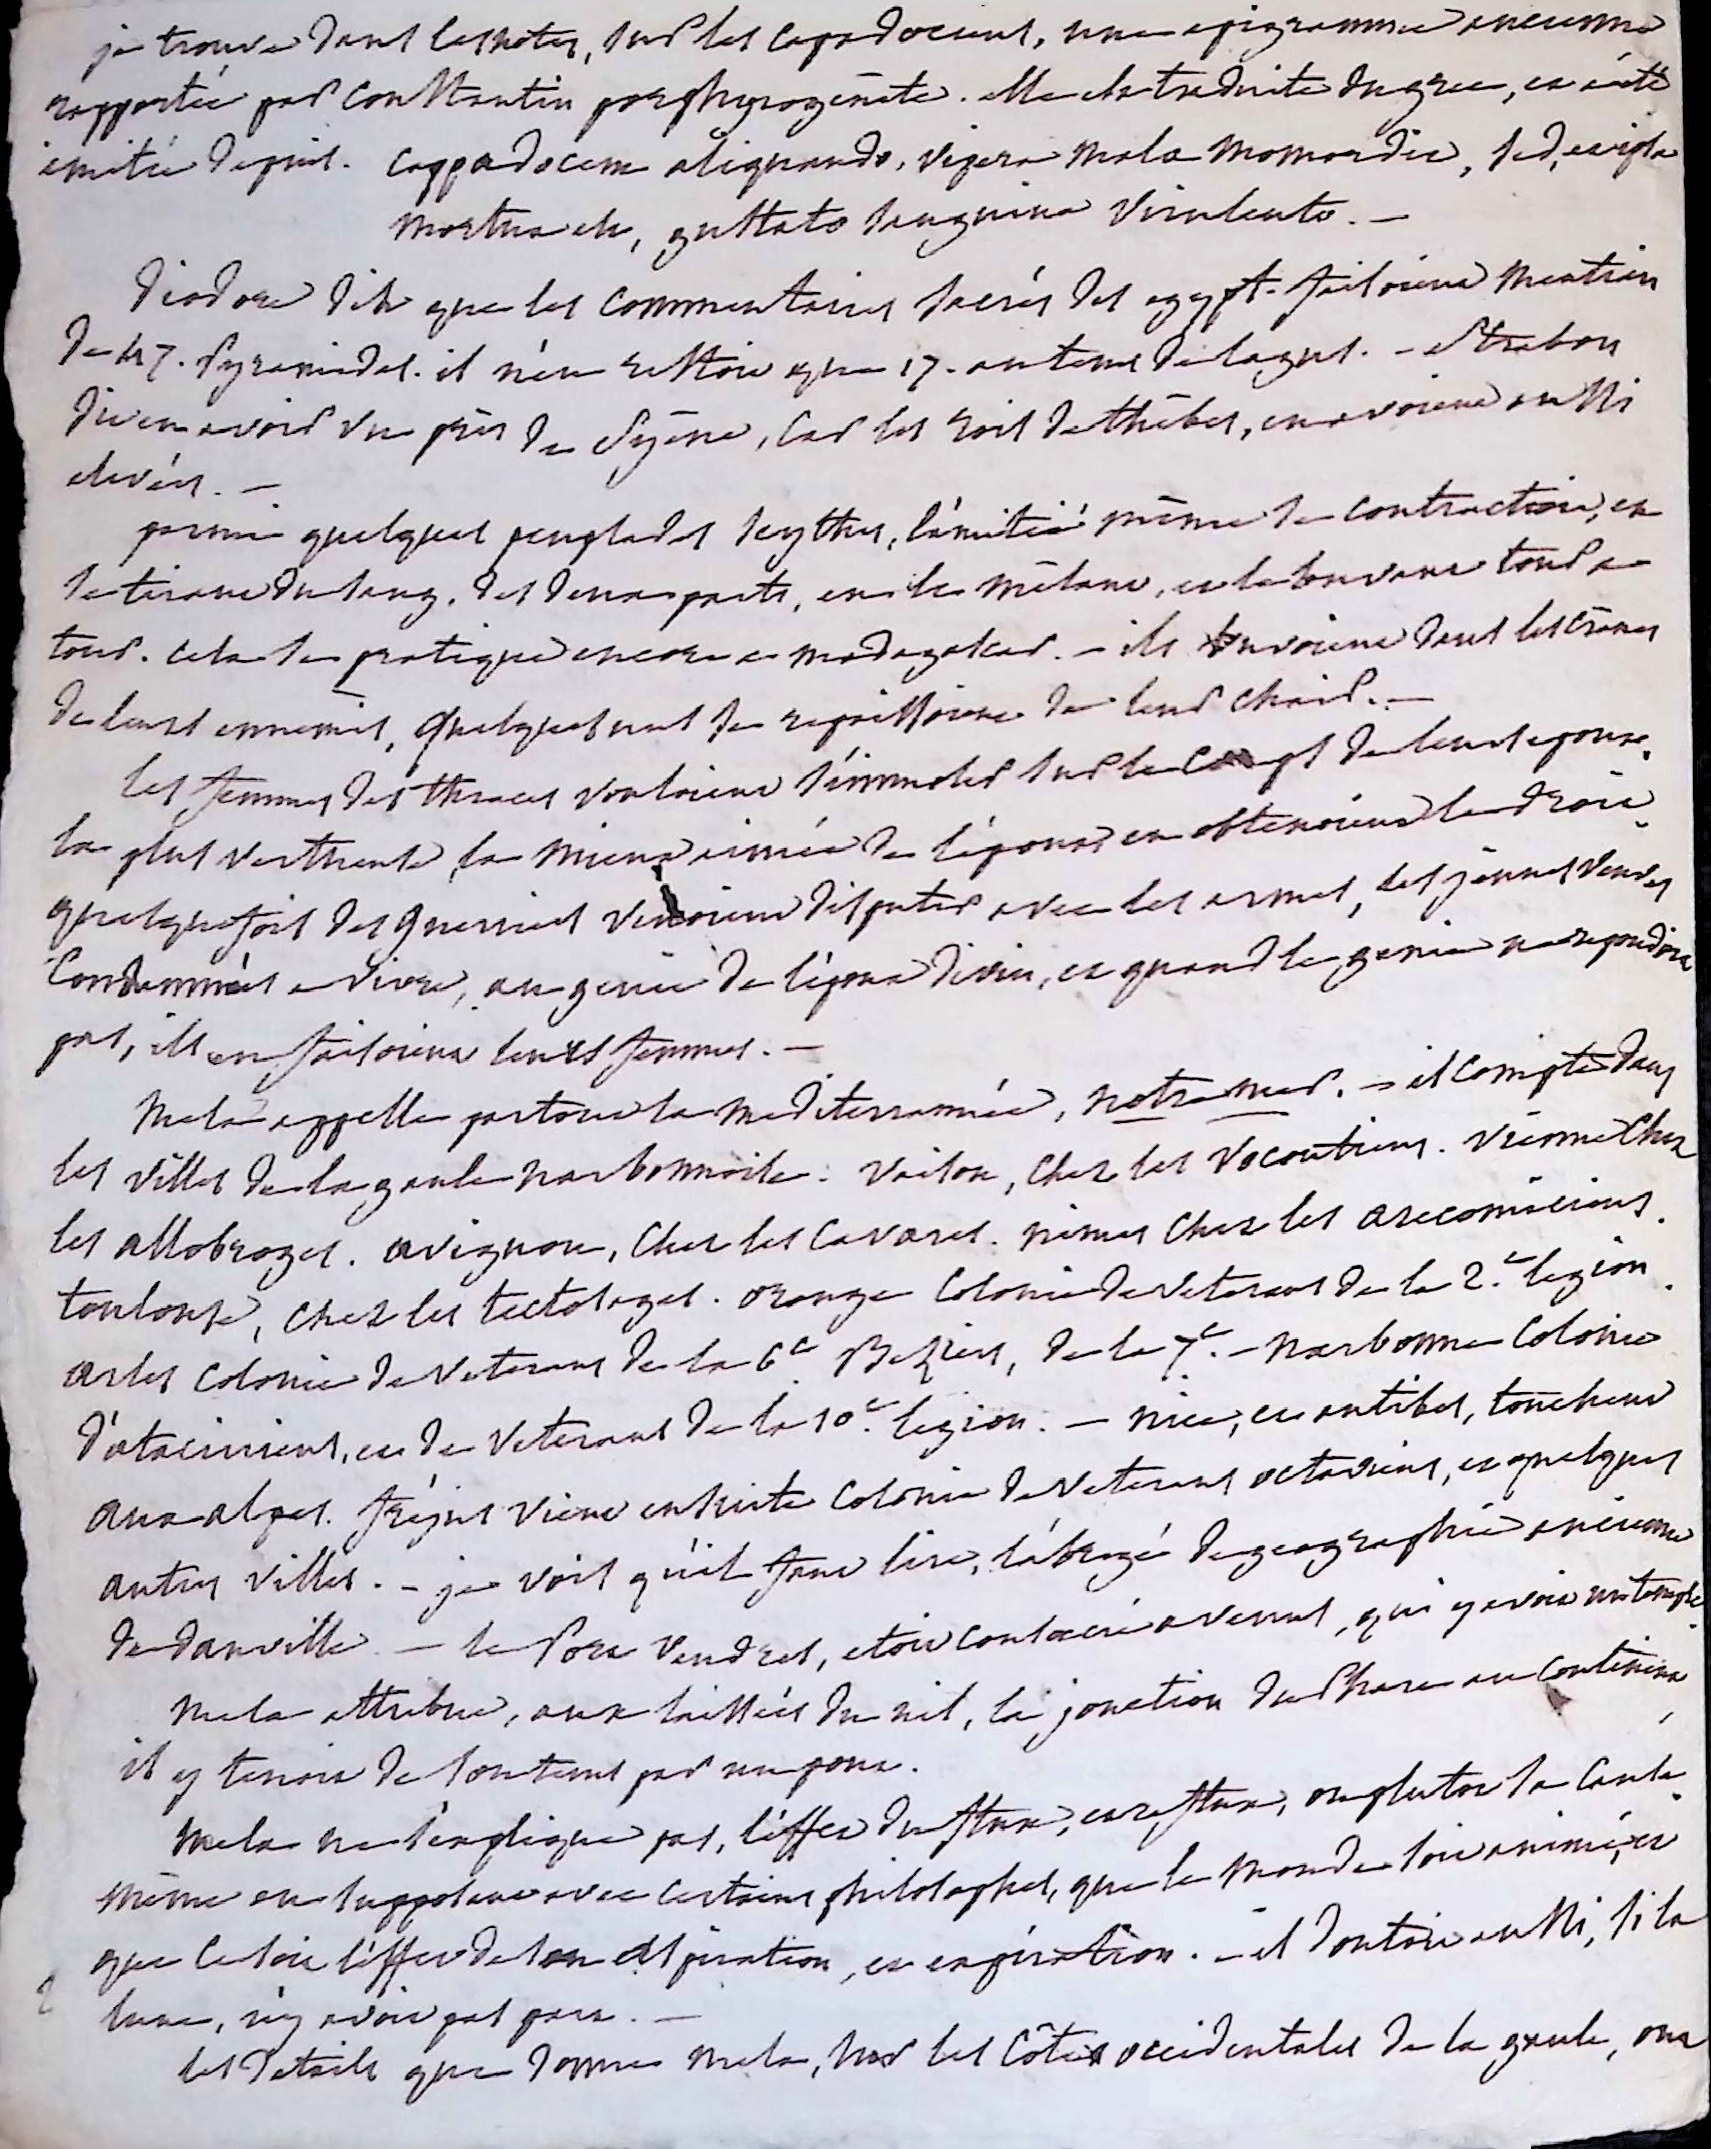 je trouve dans les notes, sur les capadociens, une epigramme ancienne
rapportée par Constantin porphyrogénète. elle est traduite du grec, et a été
imitée depuis. Cappadocem aliquando, vipera mala momordit, sed, et ipsa
mortua est, gustato sanguine virulento. —
Diodore dit que les commentaires sacrés des egypt. faisoient mention
de 47. Pyramides. il n'en restoit que 17. au tems de lagus. - Strabon
dit en avoir vu près de Syène, car les rois de thèbes, en avoient aussi
elevées. —
parmi quelques peuplades scythes, l'amitié même se contractoit, en
se tirant du sang, des deux parts, en le mêlant, et le buvant tour a
tour. cela se pratique encore a madagascar. - ils buvoient dans les crânes
de leurs ennemis, quelques uns se repaissoient de leur chair. —
les femmes des thraces vouloient s'immoler sur le corps de leurs epoux.
la plus vertueuse, la mieux aimée de l'époux en obtenoient le droit.
quelquefois des guerriers venoient disputer avec les armes, les jeunes veuves
condamnées a vivre, au genie de l'époux divin, et quand le genie ne repondoit
pas, ils en faisoient leurs femmes. —
Mela appelle partout la mediterrannée, notre mer. - il compte dans
les villes de la gaule narbonnoise. Vaison, chez les Vocontiens. Vienne chez
les allobroges. avignon, chez les Cavares. nimes chez les arecomiciens.
toulouse, chez les tectosages. orange colonie de veterans de la 2.e legion.
arles colonie de veterans de la 6.e Beziers, de la 7.e - narbonne colonie
d'ataciniens, et de veterans de la 10.e legion. — nice, et antibes, touchent
aux alpes. fréjus vient ensuite colonie de veterans octaviens, et quelques
autres villes. - je vois qu'il faut lire, l'abregé de geographie ancienne
de danville. — le Port Vendres, etoit consacré a venus, qui y avoit un temple.
Mela attribue, aux laissées du nil, la jonction du Phare au continent,
il y tenoit de son tems par un pont.
Mela ne s'explique pas, l'effet du flux, et reflux, ou plutot sa cause.
même en supposant avec certains philosophes, que le monde soit animé, et
que ce soit l'effet de son aspiration, et expiration. - il doutoit aussi, si la
lune, n'y avoit pas part. —
les details que donne Mela, sur les côtes occidentales de la gaule, ont